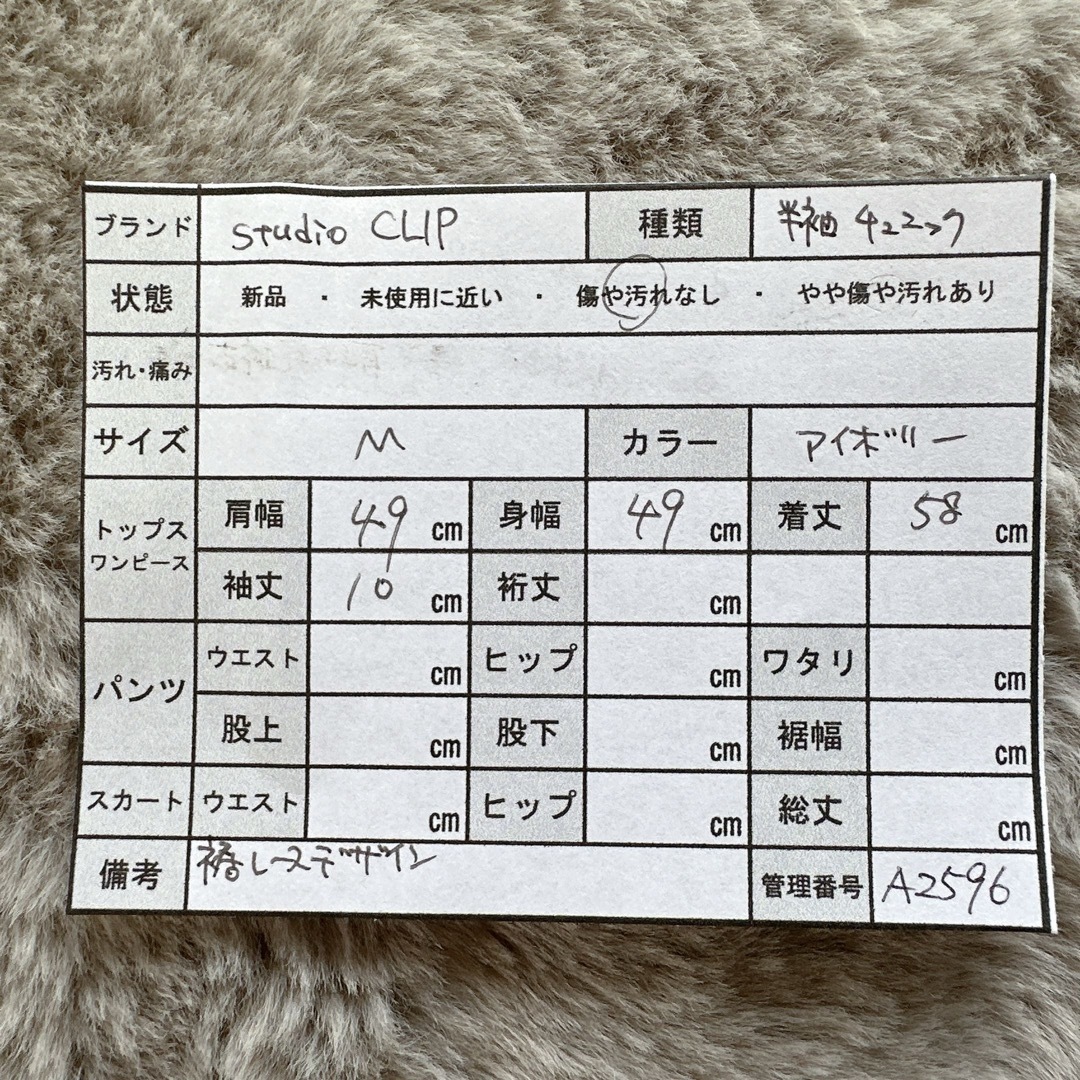 ブランド studio CLIP 種類 半袖 チュニック
状態 新品 ・ 未使用に近い ・ 傷や汚れなし ・ やや傷や汚れあり
汚れ・痛み
サイズ M カラー アイボリー
トップス ワンピース 肩幅 49 cm 身幅 49 cm 着丈 58 cm
袖丈 10 cm 裄丈 cm
パンツ ウエスト cm ヒップ cm ワタリ cm
股上 cm 股下 cm 裾幅 cm
スカート ウエスト cm ヒップ cm 総丈 cm
備考 裾レースデザイン 管理番号 A2596